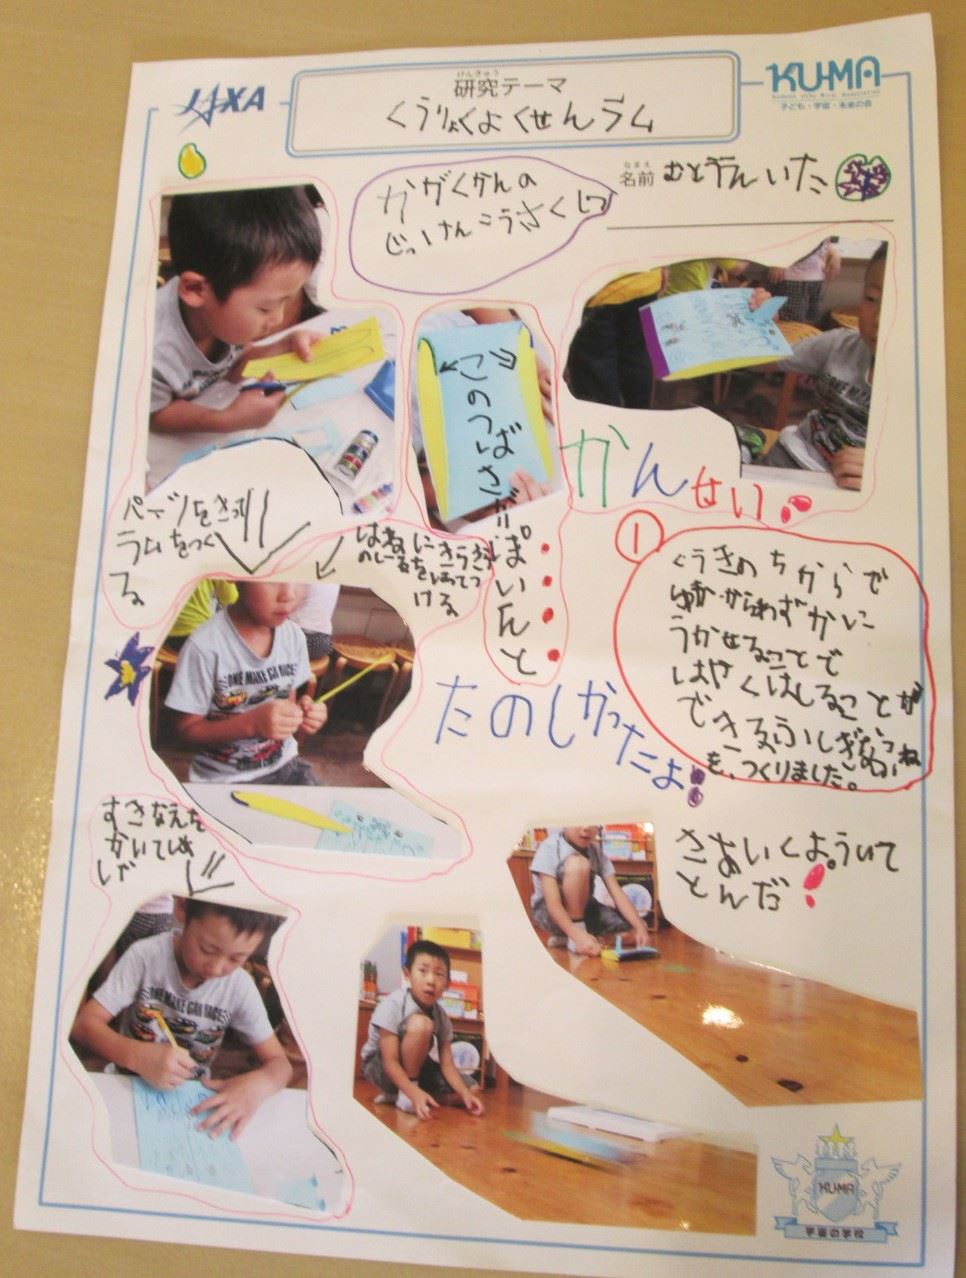 JAXA
けんきゅう
研究テーマ
くうりょくよくせんラム
KU-MA
子ども・宇宙・未来の会
なまえ
名前 むとぞんいた
かがくかんの
じっけんこうさくしつ
このつばさが
ぽいんと
かんせい
パーツをきって
ラムをつく
る
はねにきらきら
のしーるをはってつ
ける
①
くうきのちからで
ゆかからわずかに
うかせることで
はやくはしることが
できるふしぎなふね
を、つくりました。
たのしかったよ!
すきなえを
かいていね
さあいくよ。ういて
とんだ!
KU-MA
宇宙の学校